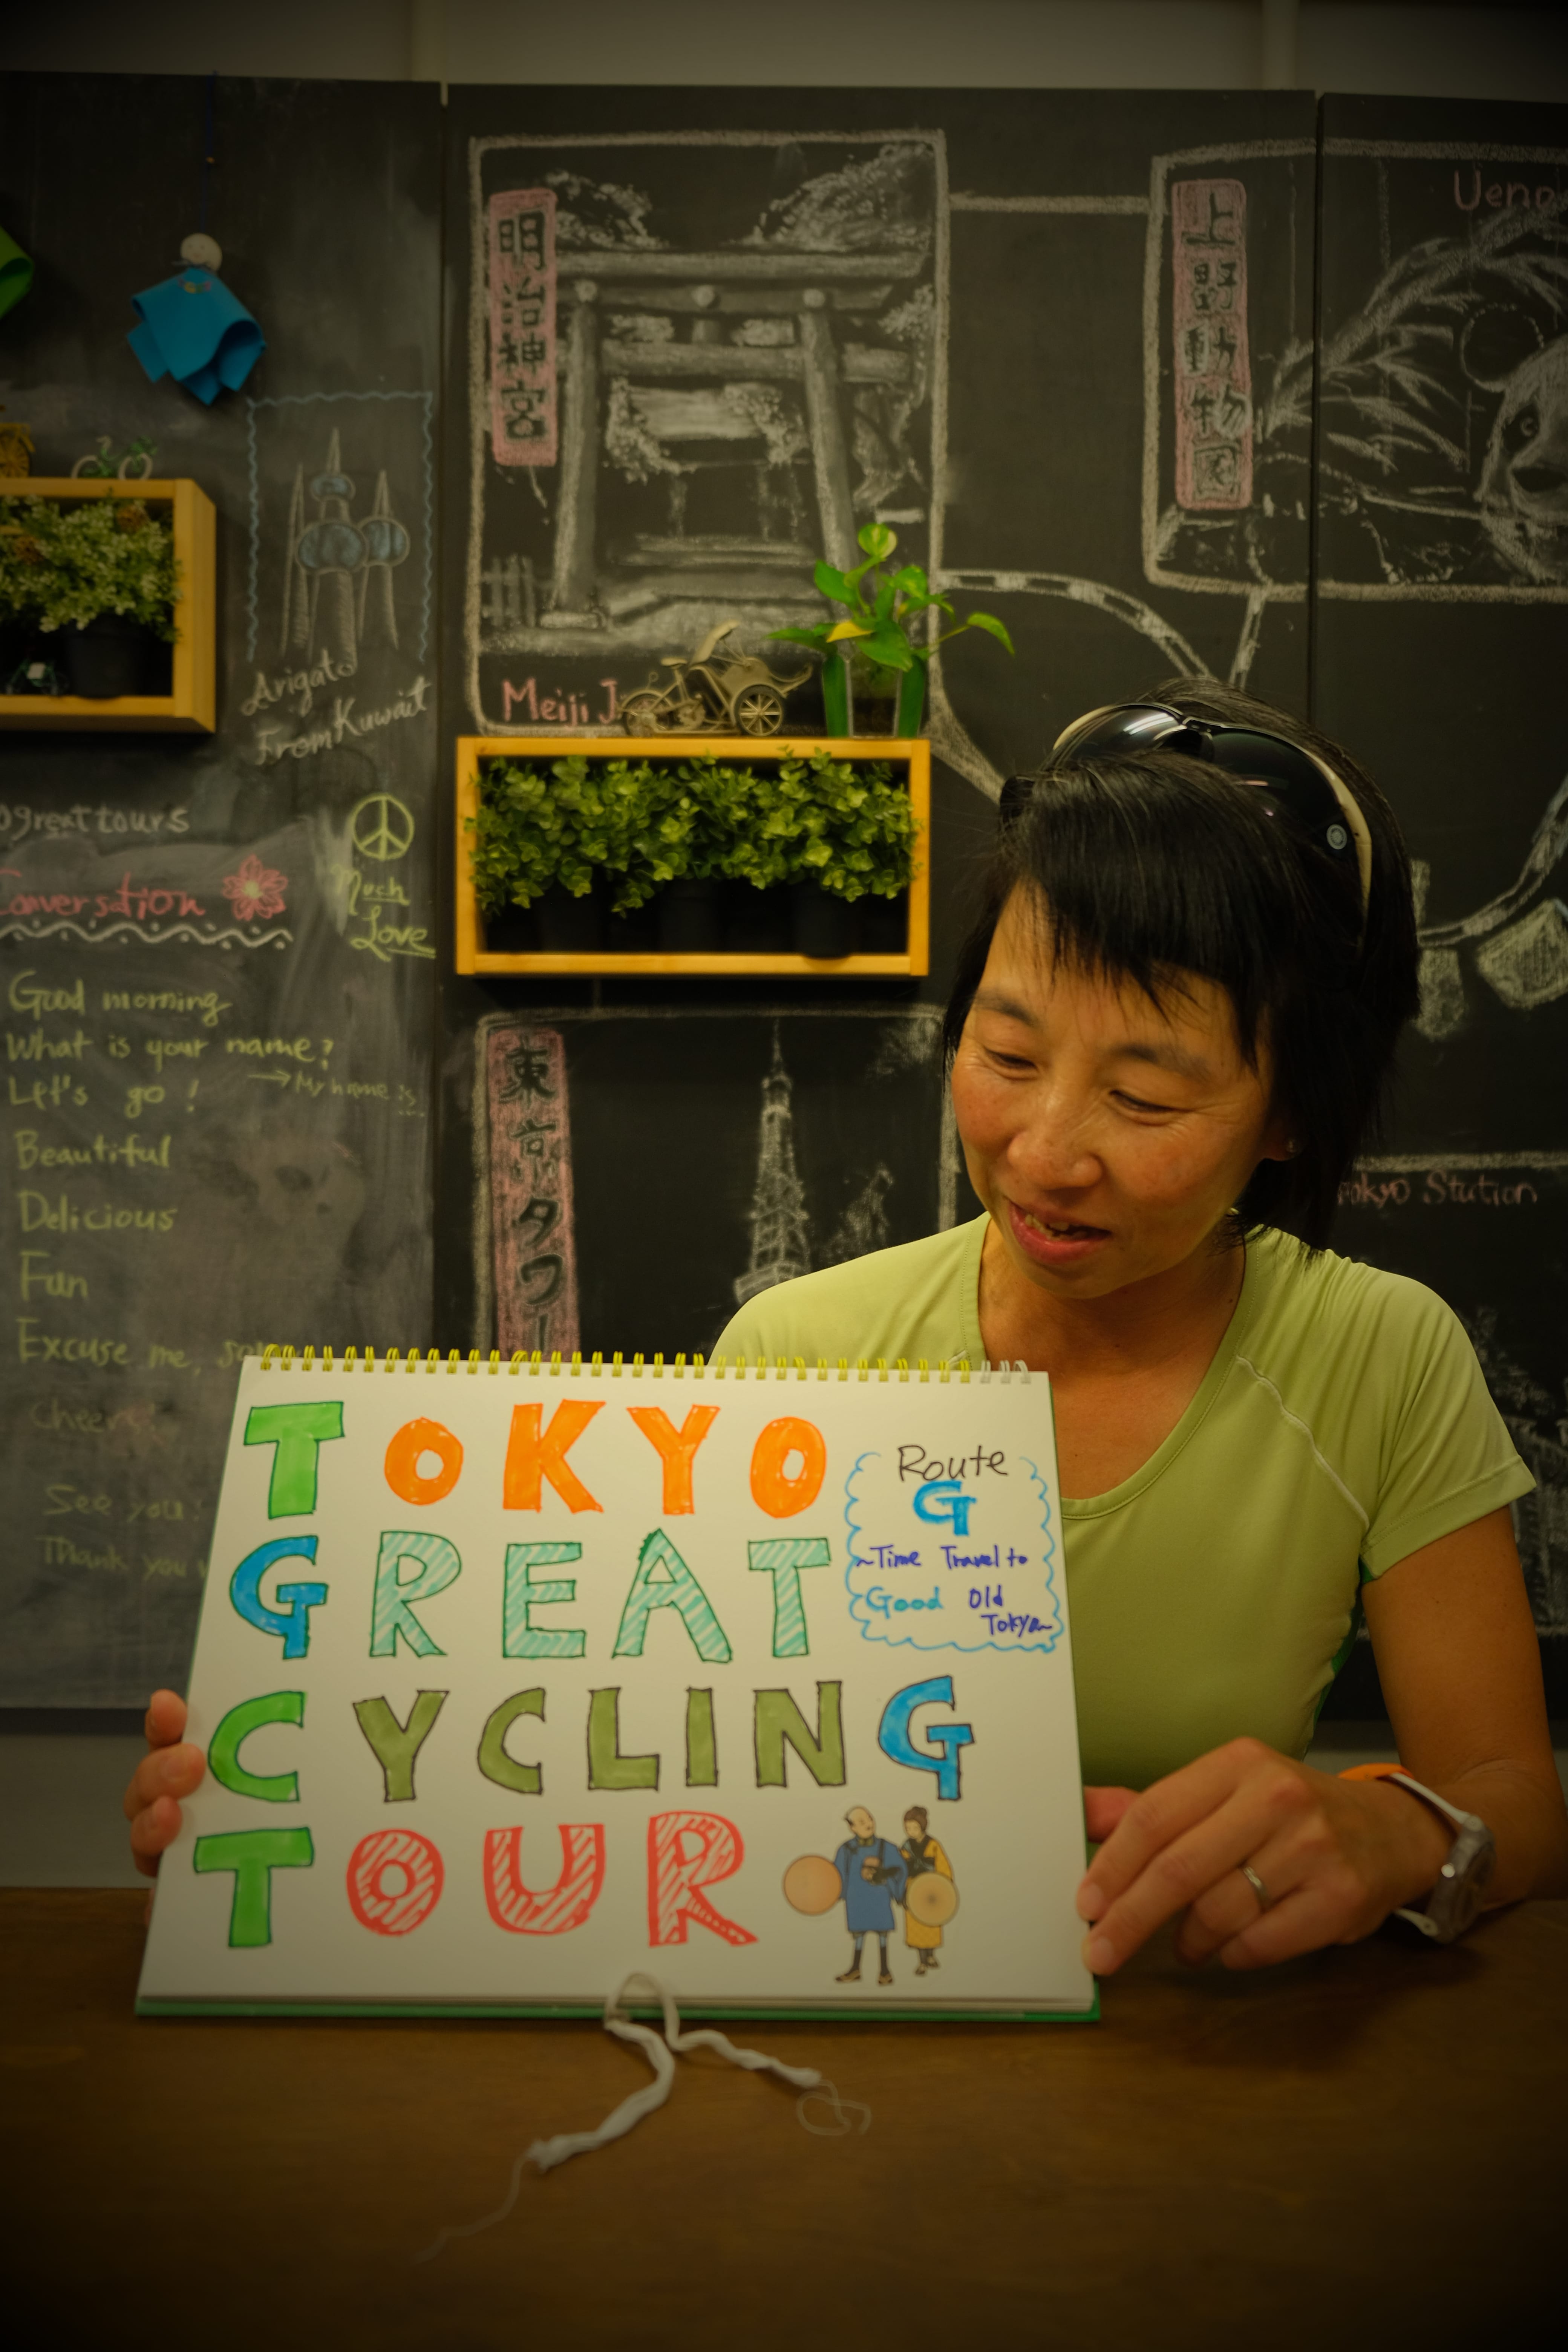 明治神宮
上野動物園
Ueno
Arigato
From Kuwait
Meiji J
ogreattours
Conversation
Much
Love
Good morning
What is your name?
→My name is...
Let's go!
Beautiful
Delicious
Fun
Excuse me,
Cheers
See you!
Thank you
東京タワー
Tokyo Station
TOKYO
GREAT
CYCLING
TOUR
Route
G
~Time Travel to
Good Old
Tokyo~